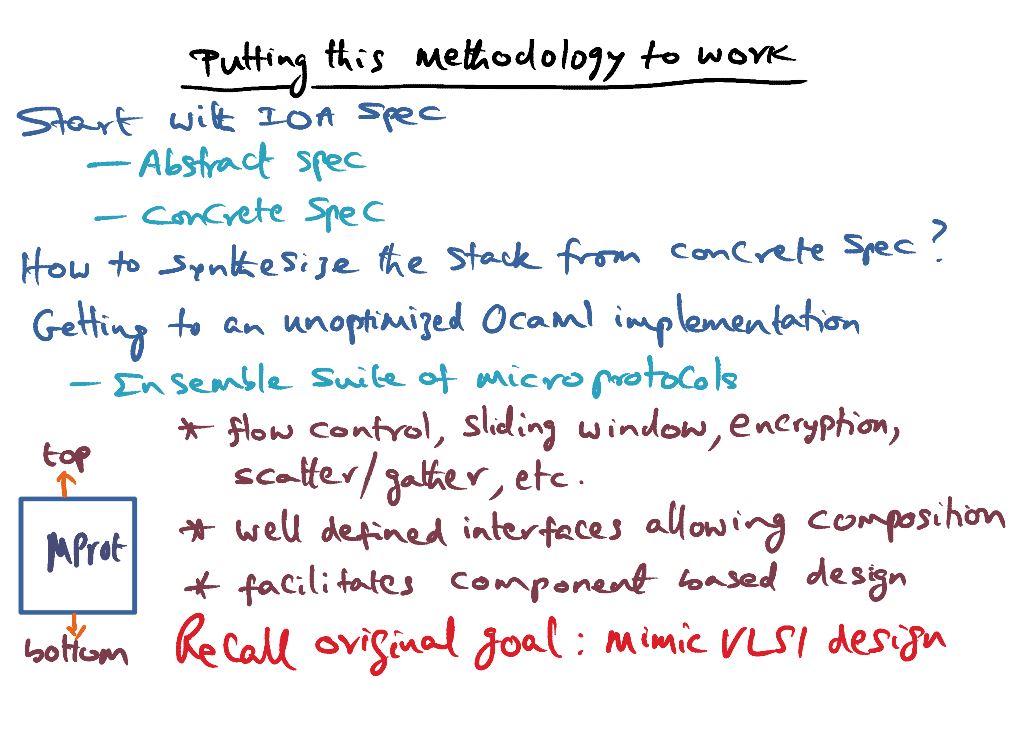 Putting this Methodology to work
Start with IOA spec
— Abstract spec
— Concrete spec
How to synthesize the stack from concrete spec?
Getting to an unoptimized Ocaml implementation
— Ensemble suite of microprotocols
* flow control, sliding window, encryption,
scatter/gather, etc.
* well defined interfaces allowing composition
* facilitates component based design
top
MProt
bottom
Recall original goal: mimic VLSI design